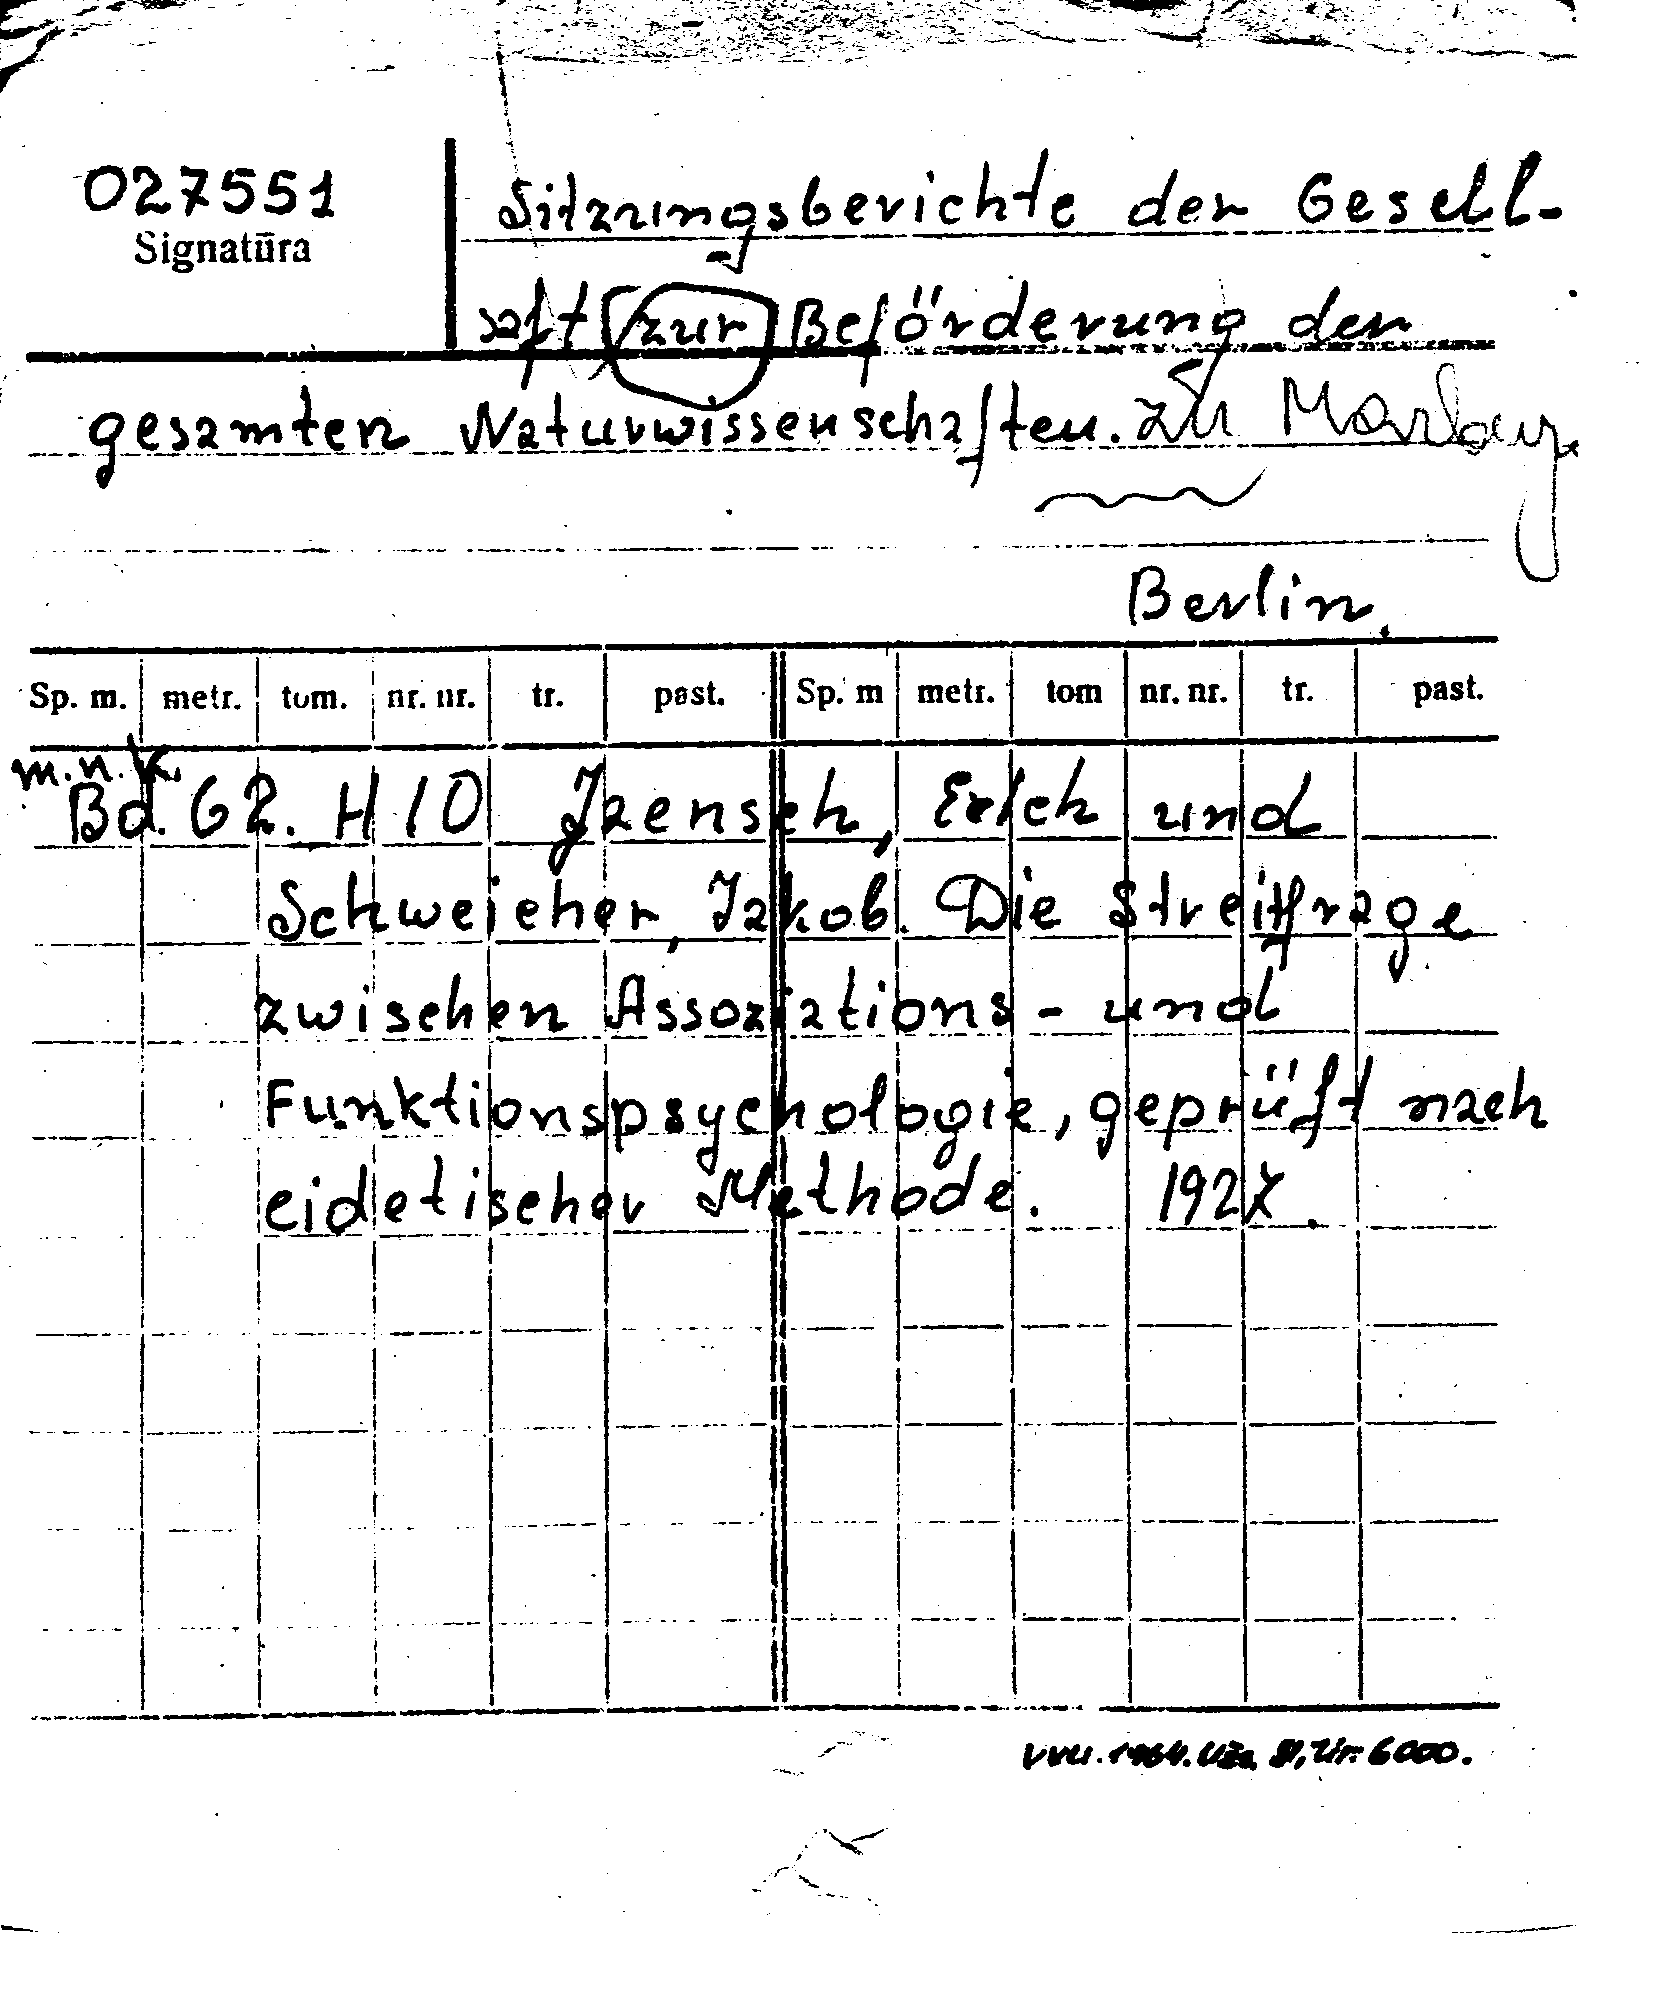 027551
Signatūra
Sitzungsberichte der Gesell-
saft zur Beförderung der
gesamten Naturwissenschaften. zu Marburg
Berlin.
Sp. m. metr. tom. nr. nr. tr. past. Sp. m metr. tom nr. nr. tr. past.
m.n.k.
Bd. 62. H 10 Jaensch, Erich und
Schweicher, Jakob. Die Streitfrage
zwischen Assoziations- und
Funktionspsychologie, geprüft nach
eidetischer Methode. 1927.
VVU. 1964. Užs. Tir. 6000.